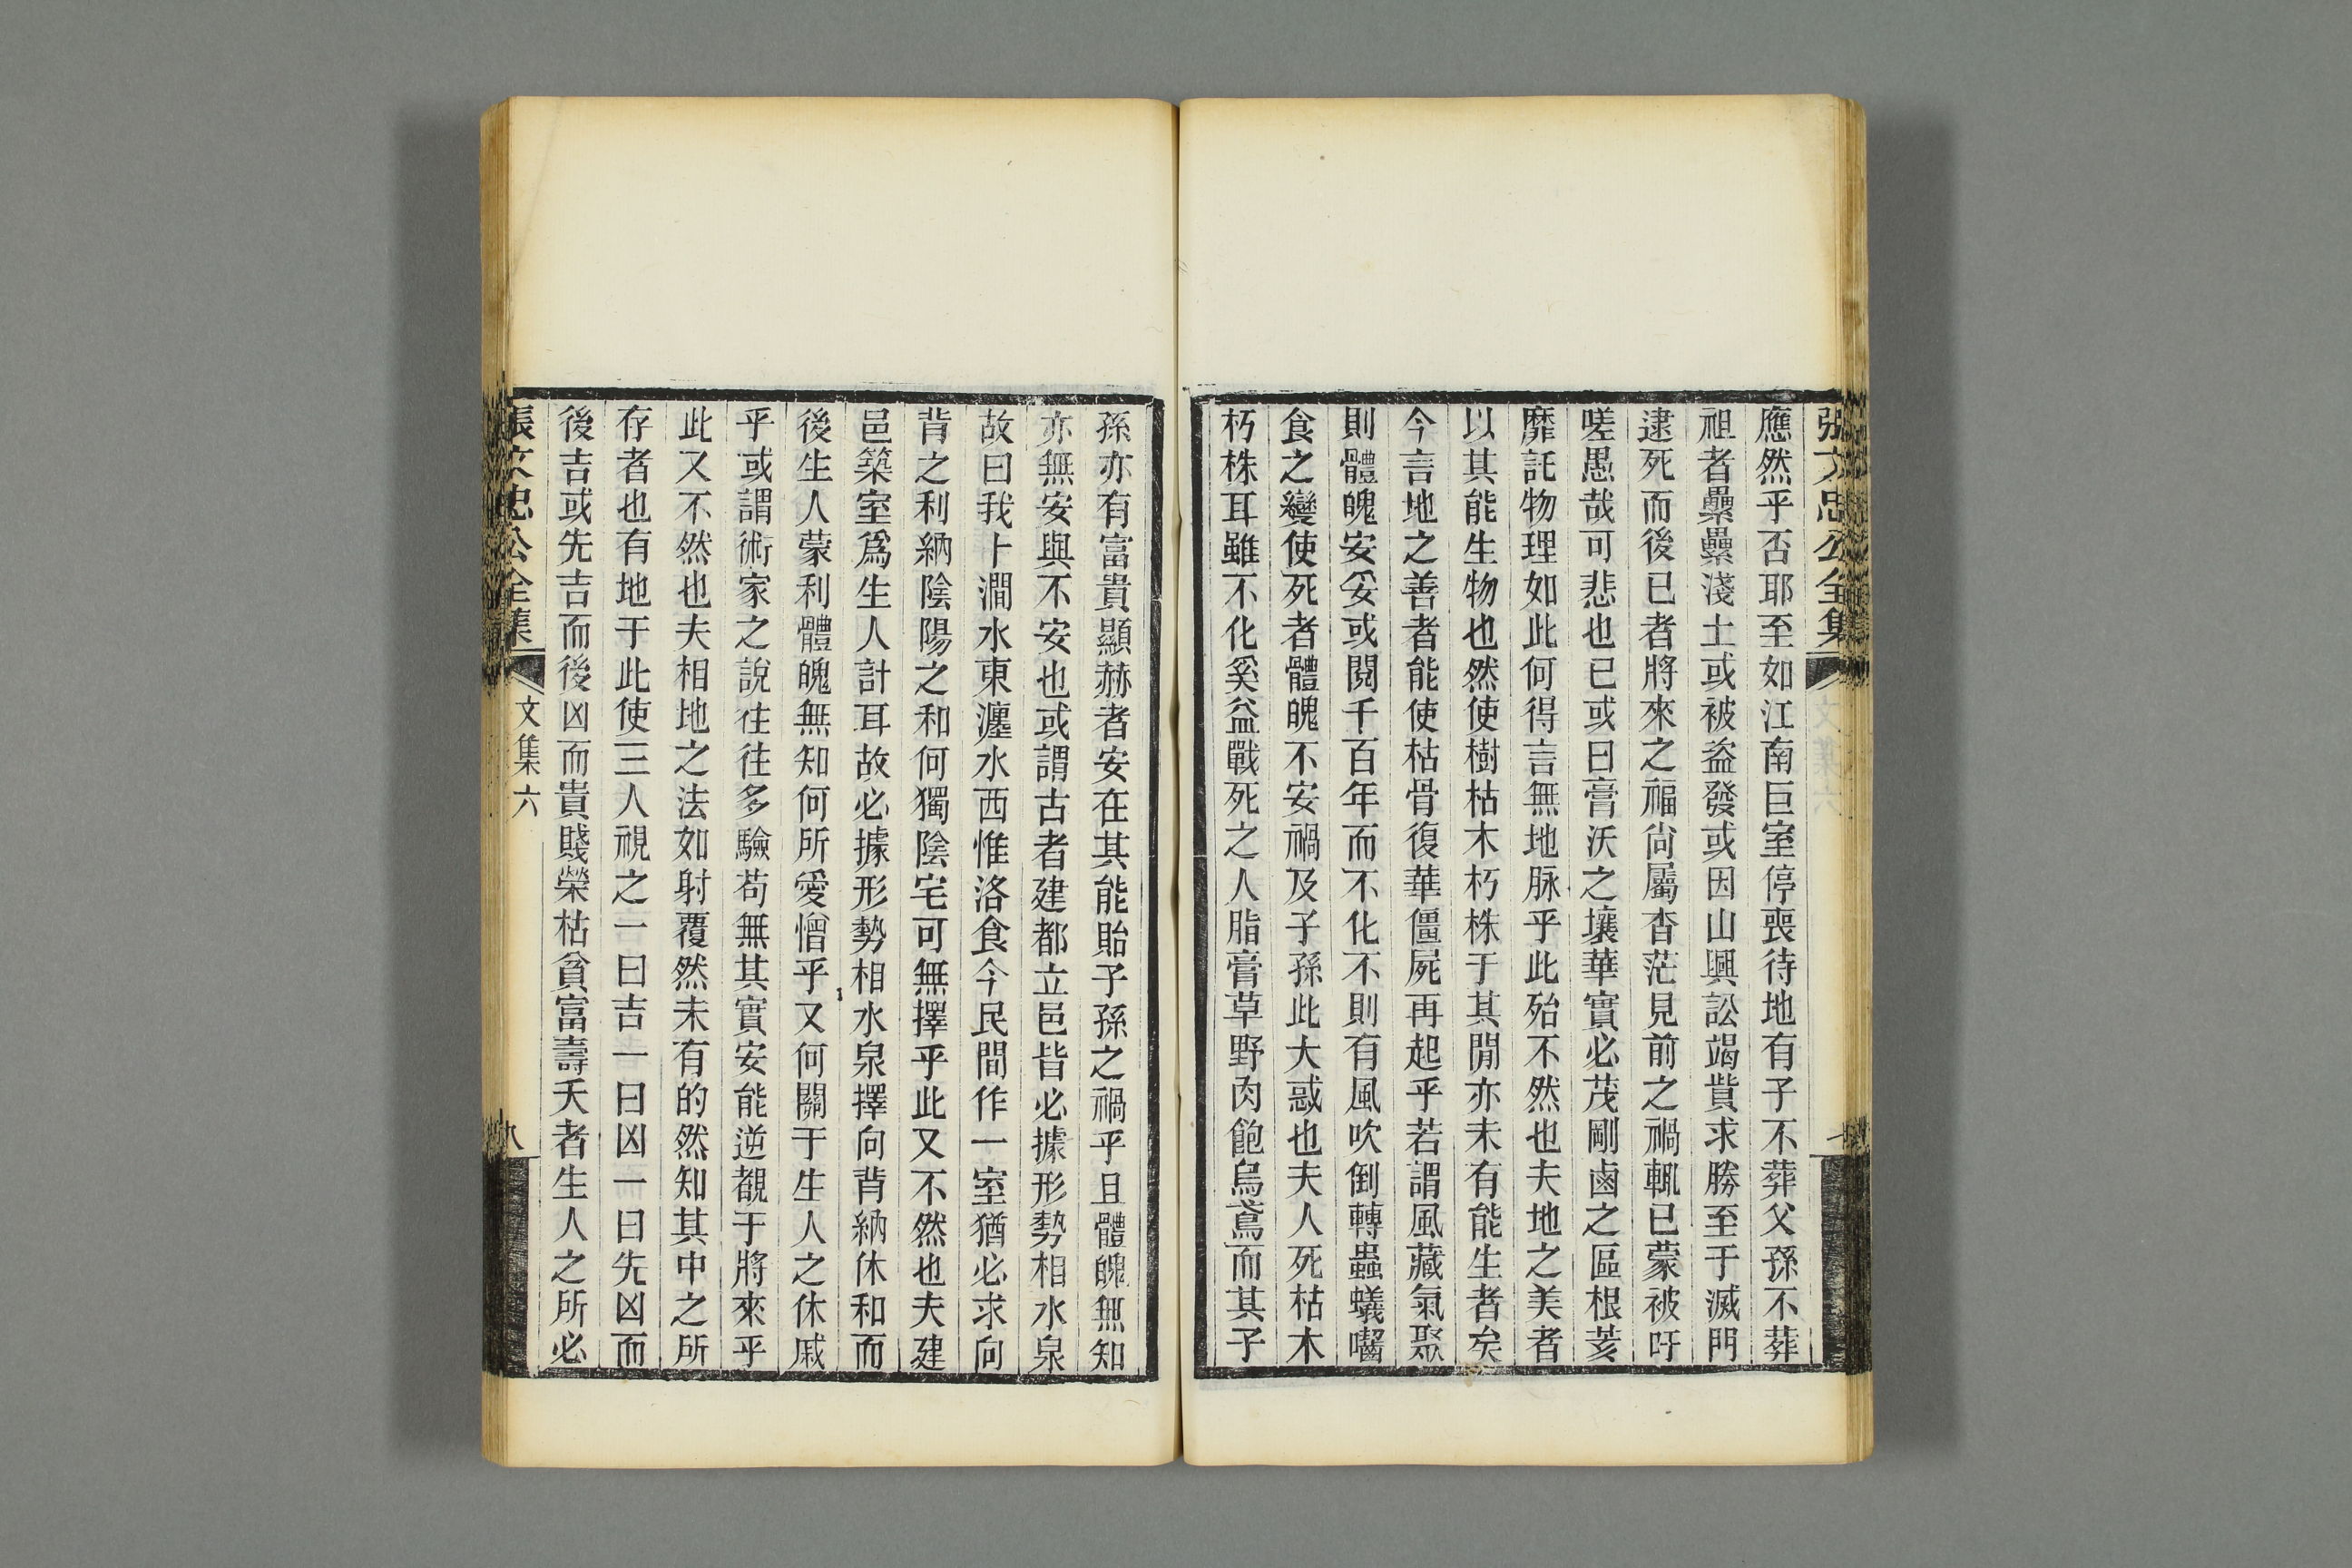 張文忠公全集
應然乎否耶至如江南巨室停喪待地有子不葬父孫不葬
祖者纍纍淺土或被盜發或因山興訟竭貲求勝至于滅門
逮死而後已者將來之福尙屬杳茫見前之禍輒已蒙被吁
嗟愚哉可悲也已或曰膏沃之壤華實必茂剛鹵之區根荄
靡託物理如此何得言無地脉乎此殆不然也夫地之美者
以其能生物也然使樹枯木朽株于其閒亦未有能生者矣
今言地之善者能使枯骨復華僵屍再起乎若謂風藏氣聚
則體魄安妥或閱千百年而不化不則有風吹倒轉蟲蟻囓
食之變使死者體魄不安禍及子孫此大惑也夫人死枯木
朽株耳雖不化奚益戰死之人脂膏草野肉飽烏鳶而其子
孫亦有富貴顯赫者安在其能貽子孫之禍乎且體魄無知
亦無安與不安也或謂古者建都立邑皆必據形勢相水泉
故曰我卜澗水東瀍水西惟洛食今民間作一室猶必求向
背之利納陰陽之和何獨陰宅可無擇乎此又不然也夫建
邑築室爲生人計耳故必據形勢相水泉擇向背納休和而
後生人蒙利體魄無知何所愛憎乎又何關于生人之休戚
乎或謂術家之說往往多驗苟無其實安能逆覩于將來乎
此又不然也夫相地之法如射覆然未有的然知其中之所
存者也有地于此使三人視之一曰吉一曰凶一曰先凶而
後吉或先吉而後凶而貴賤榮枯貧富壽夭者生人之所必
張文忠公全集
文集六
八